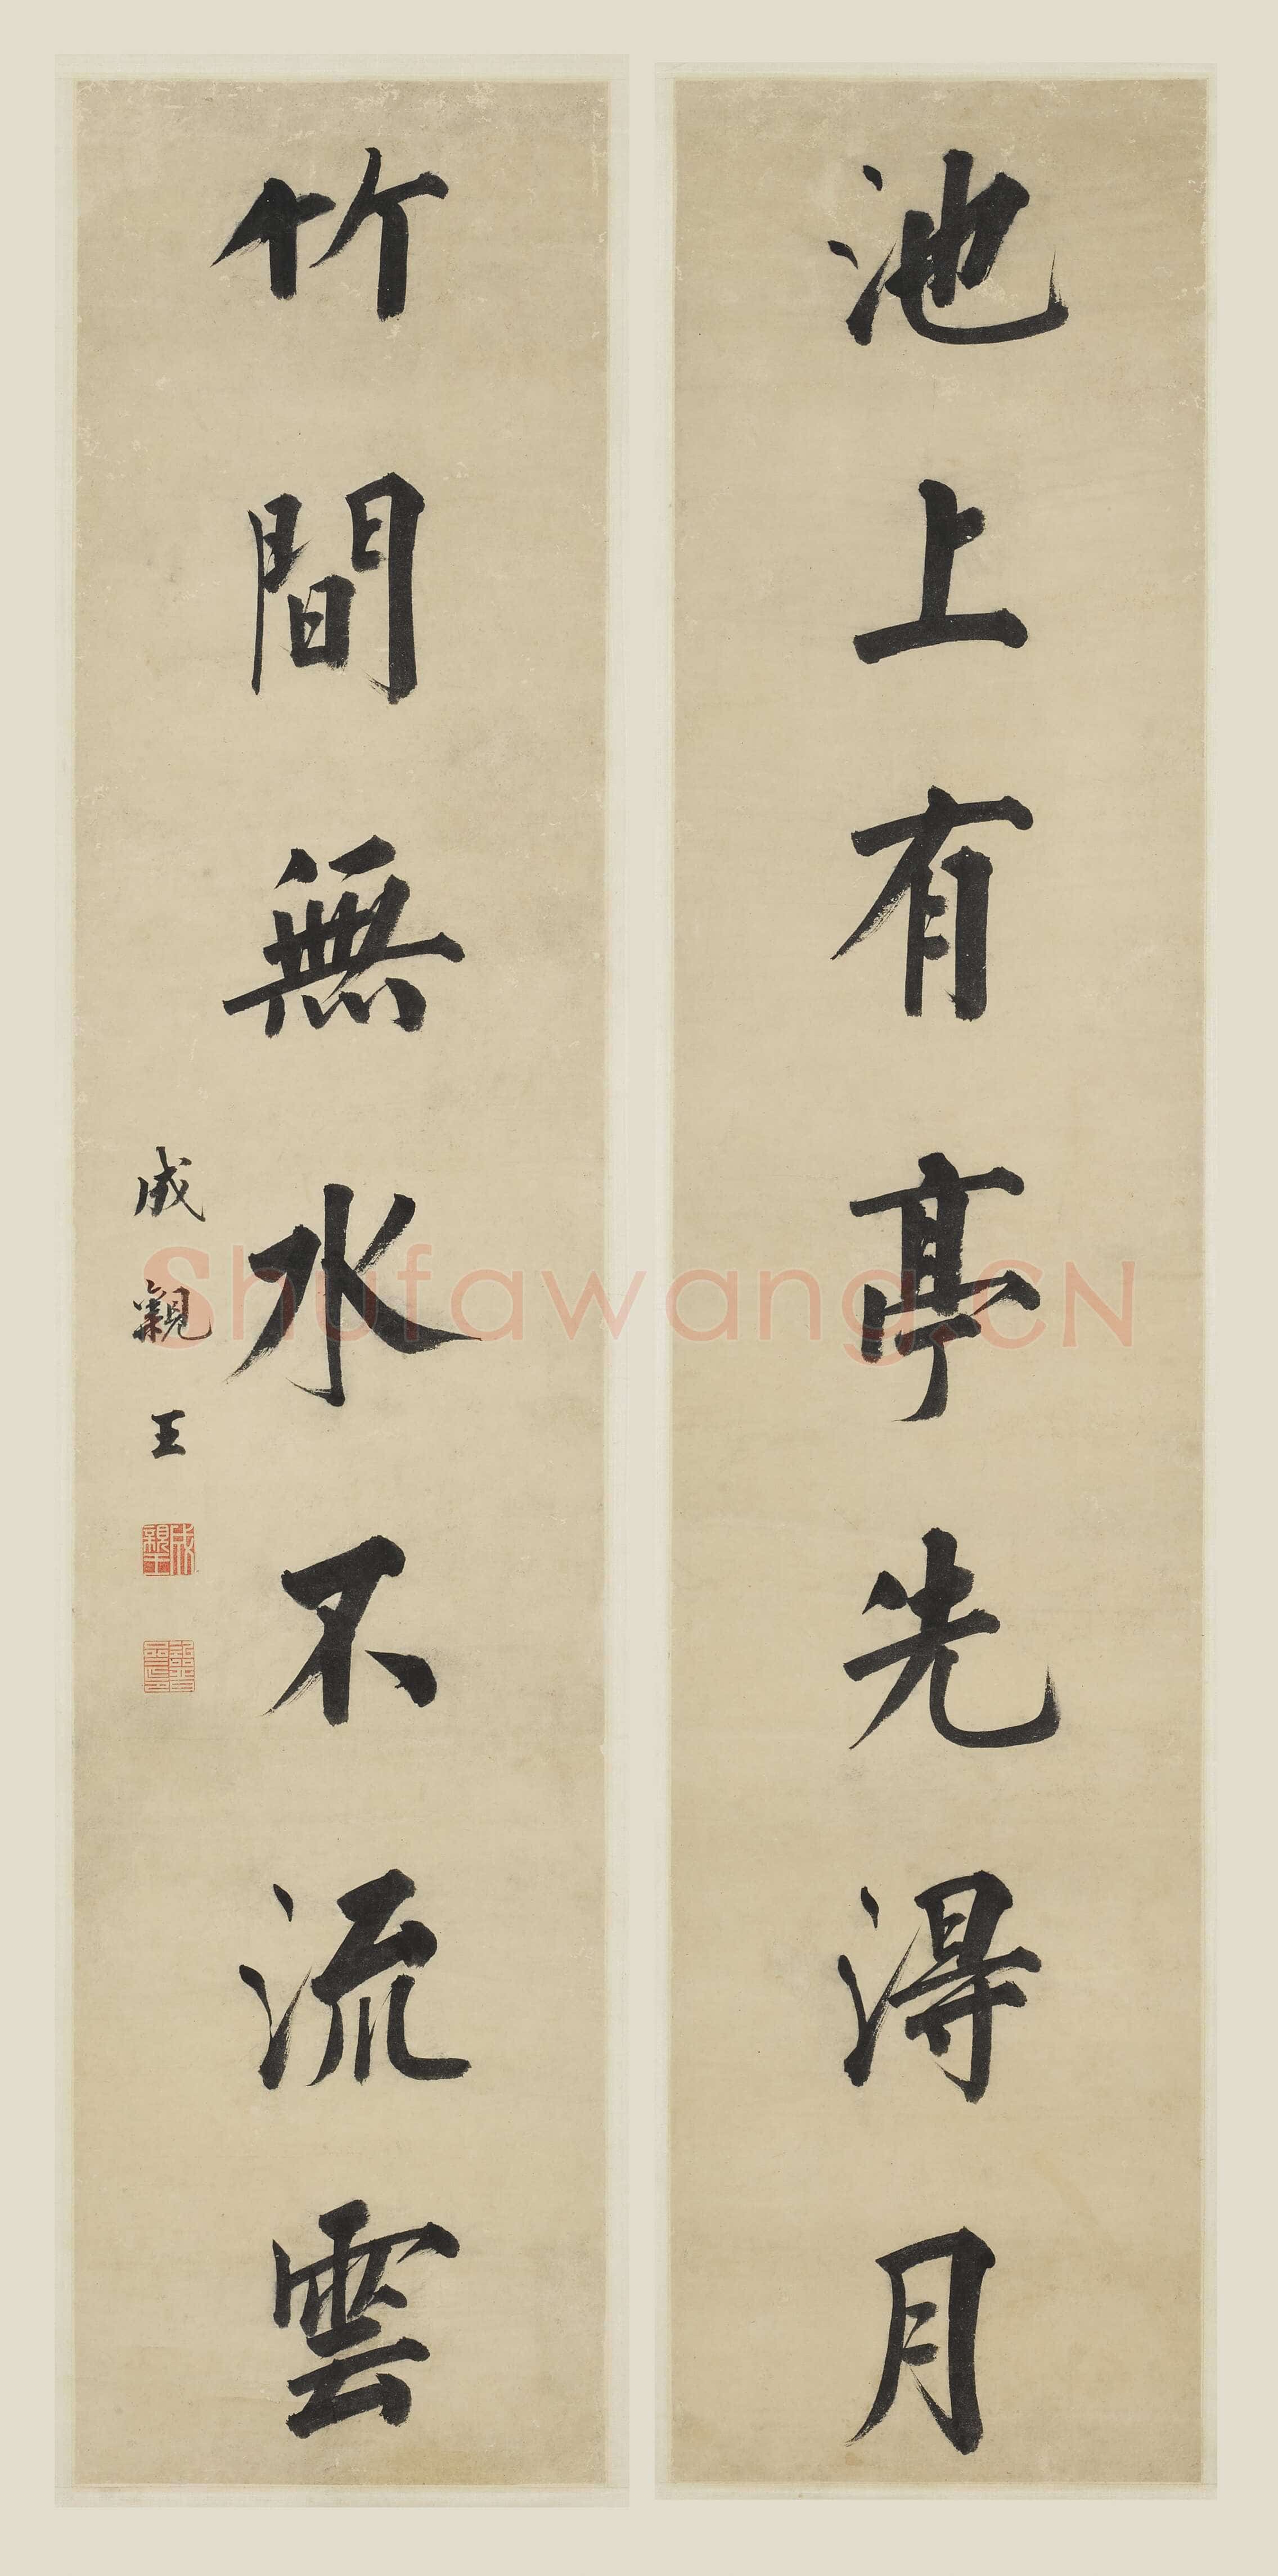 池上有亭先得月
竹間無水不流雲
成親王
成親王
Shufawang.CN